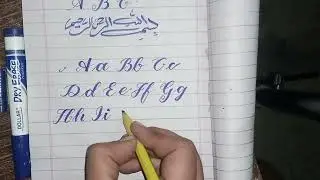 A B C
بسم الله الرحمن الرحیم
Aa Bb Cc
Dd Ee Ff Gg
Hh Ii
DOLLAR DRY ERASE